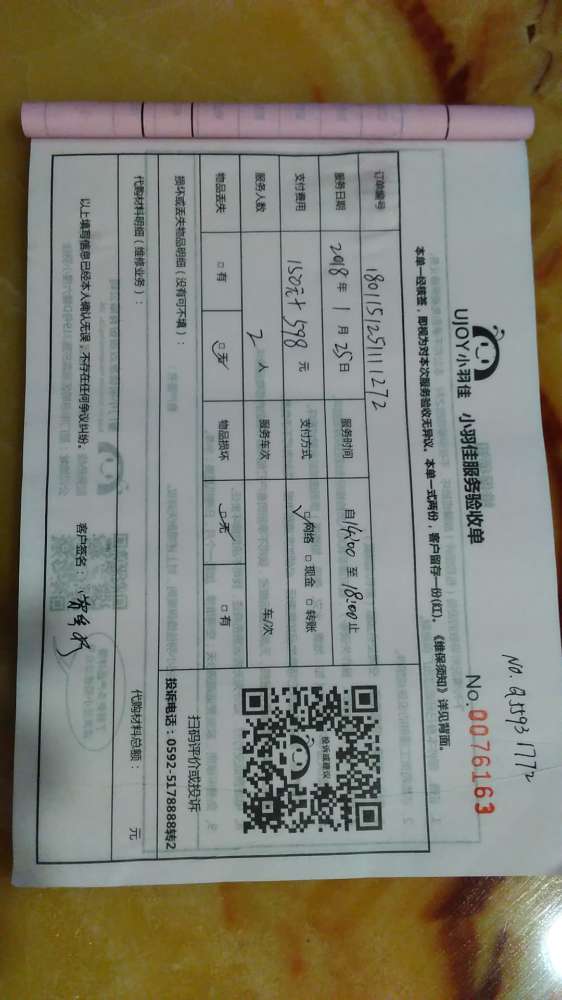 UJOY小羽佳 小羽佳服务验收单
NO. 935931772
No. 0076163
本单一经核签，即视为对本次服务验收无异议。本单一式两份，客户留存一份(红)。《维保须知》详见背面。
订单编号 180115125111272
服务日期 2018年1月25日 服务时间 自14:00至18:00止
支付费用 150元+598元 支付方式 ☑网络 □现金 □转账
服务人数 2人 服务车次 车/次
物品丢失 □有 ☑无 物品损坏 ☑无 □有
投诉或建议
扫码评价或投诉
投诉电话：0592-5178888转2
损坏或丢失物品明细（没有可不填）：
代购材料明细（维修业务）： 代购材料总额： 元
以上填写信息已经本人确认无误，不存在任何争议纠纷。 客户签名：